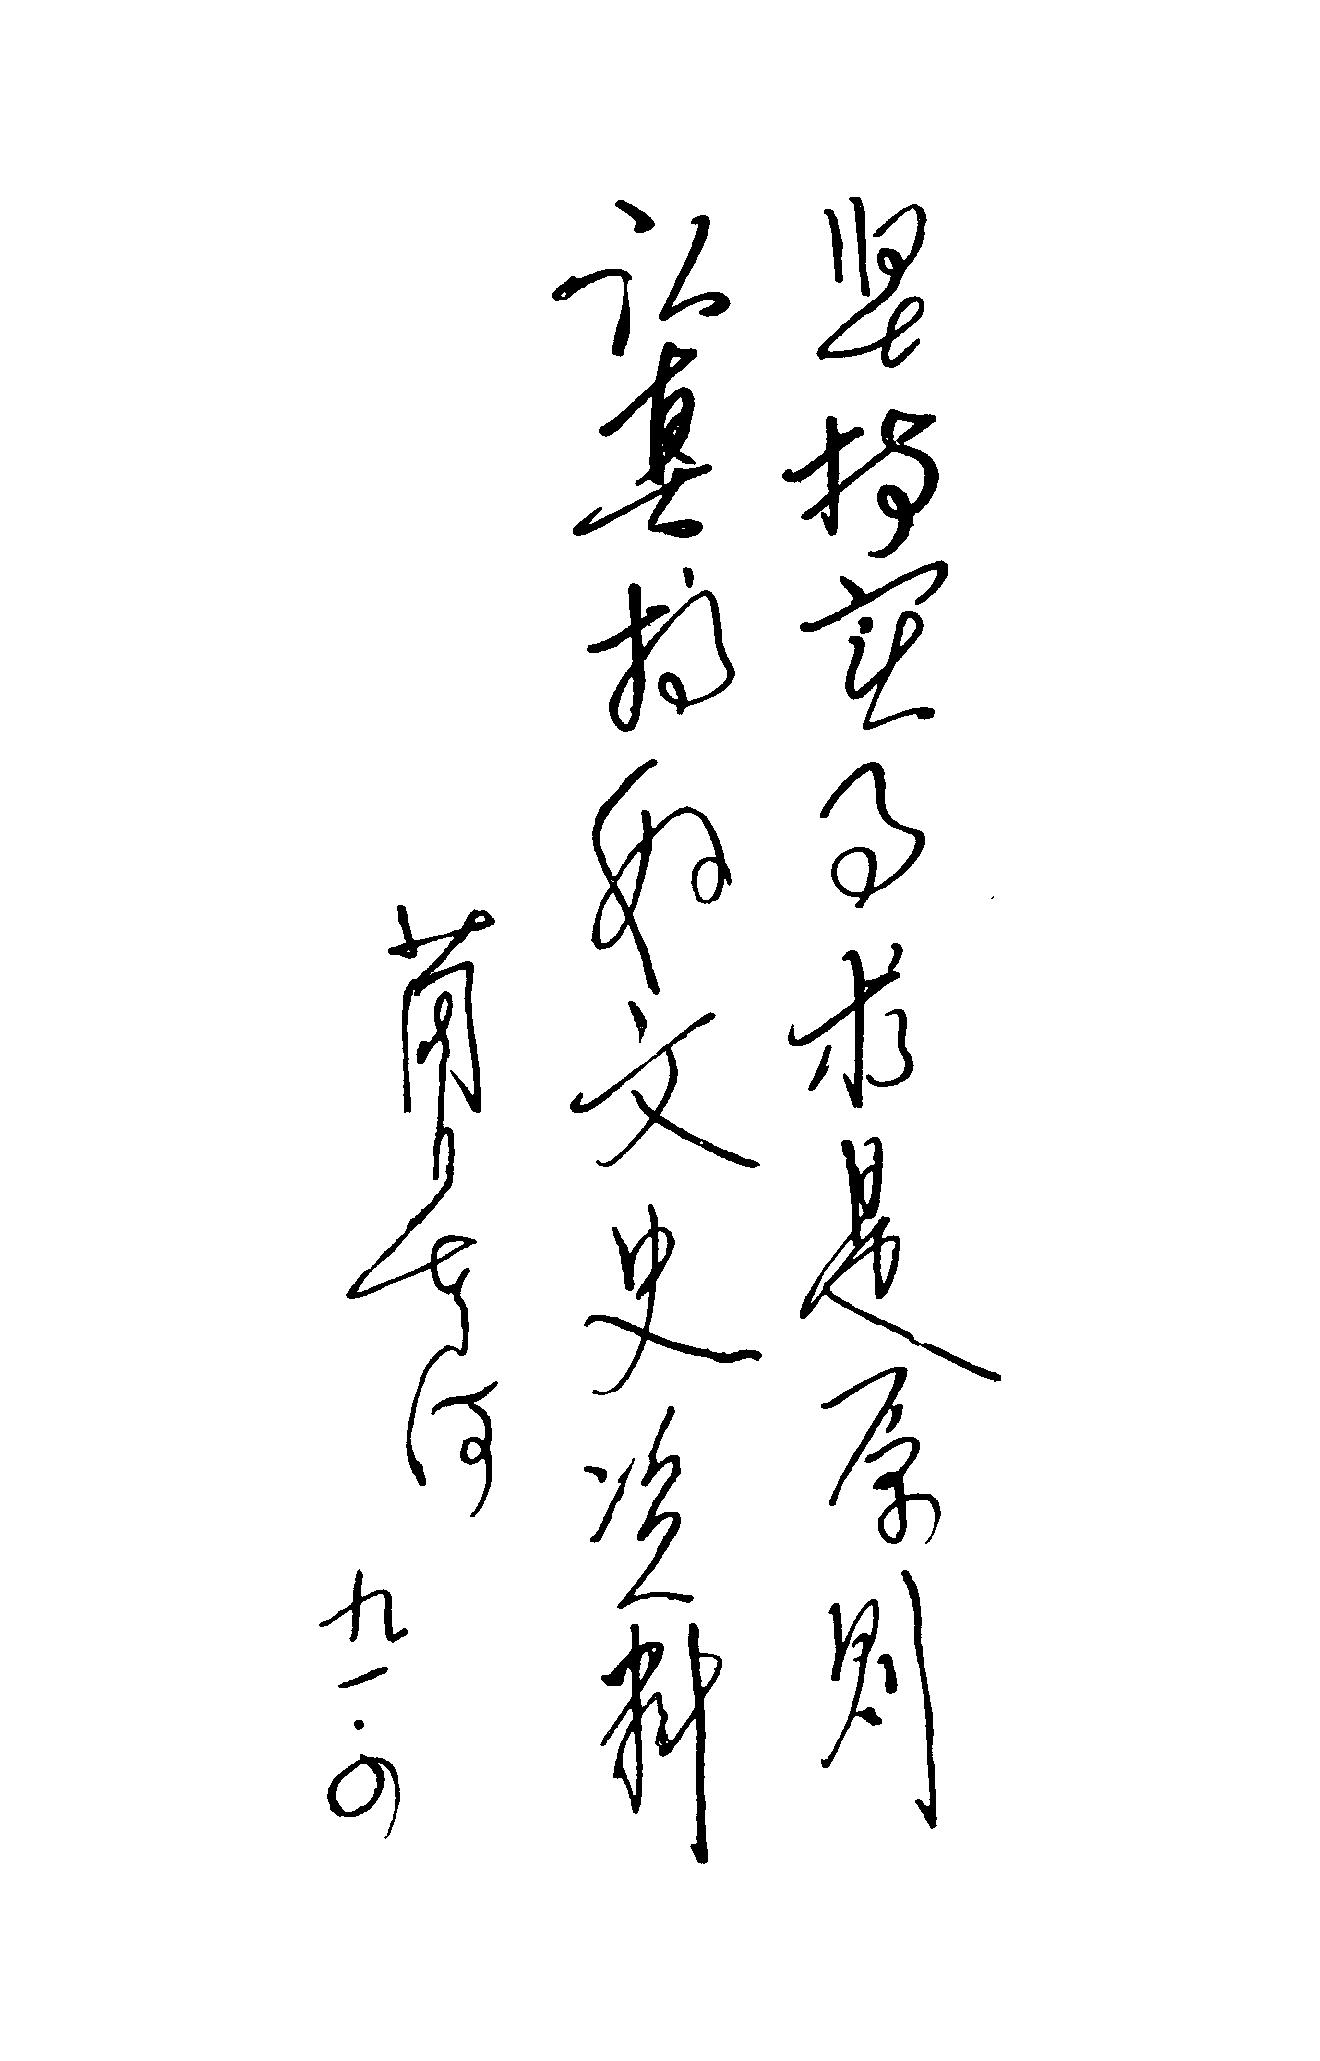 坚持实事求是原则
认真搞好文史资料
九一·四